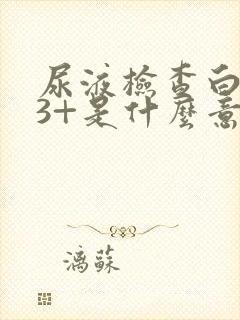 尿液檢查白
3+是什麼意
漓蘇